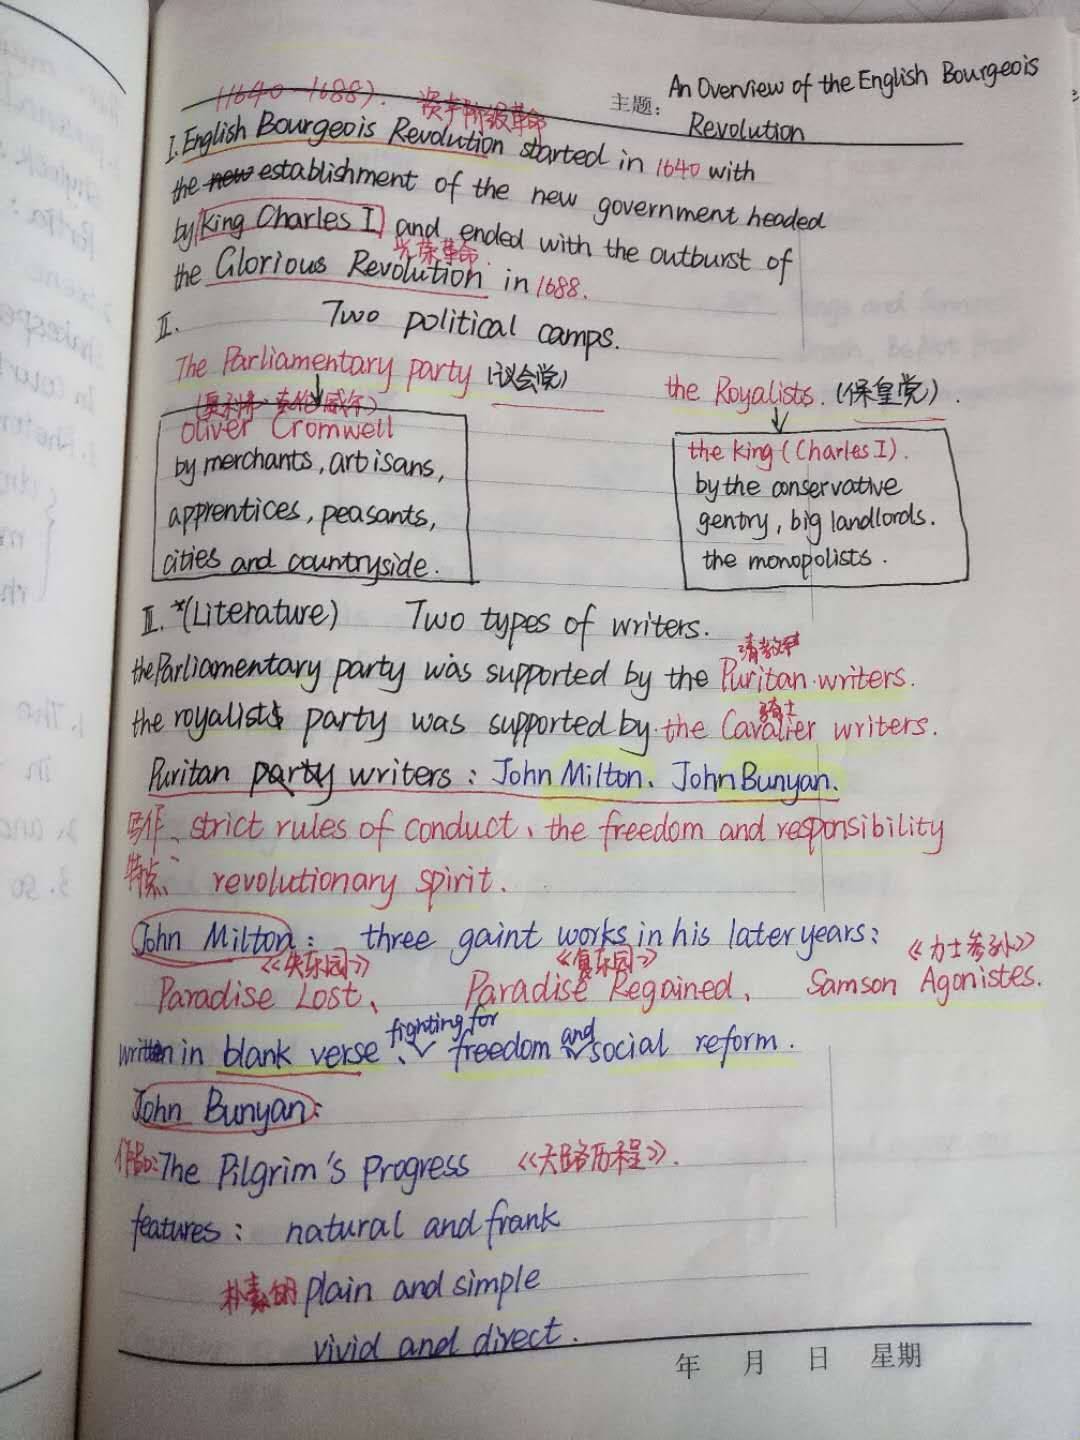 主题: An Overview of the English Bourgeois
Revolution
(1640-1688). 资产阶级革命
I. English Bourgeois Revolution started in 1640 with
the new establishment of the new government headed
by King Charles I and ended with the outburst of
光荣革命
the Glorious Revolution in 1688.
II. Two political camps.
The Parliamentary party (议会党)
the Royalists. (保皇党).
Oliver Cromwell
by merchants, artisans,
apprentices, peasants,
cities and countryside.
the king (Charles I).
by the conservative
gentry, big landlords.
the monopolists.
III. *(Literature) Two types of writers.
清教徒
the Parliamentary party was supported by the Puritan writers.
骑士
the royalists party was supported by the Cavalier writers.
Puritan party writers: John Milton、John Bunyan.
写作 strict rules of conduct、the freedom and responsibility
特点: revolutionary spirit.
John Milton: three gaint works in his later years:
《失乐园》 《复乐园》 《力士参孙》
Paradise Lost、 Paradise Regained、 Samson Agonistes.
fighting for and
written in blank verse、 freedom social reform.
John Bunyan:
The Pilgrim's Progress 《天路历程》.
features: natural and frank
朴素的 plain and simple
vivid and direct.
年 月 日 星期